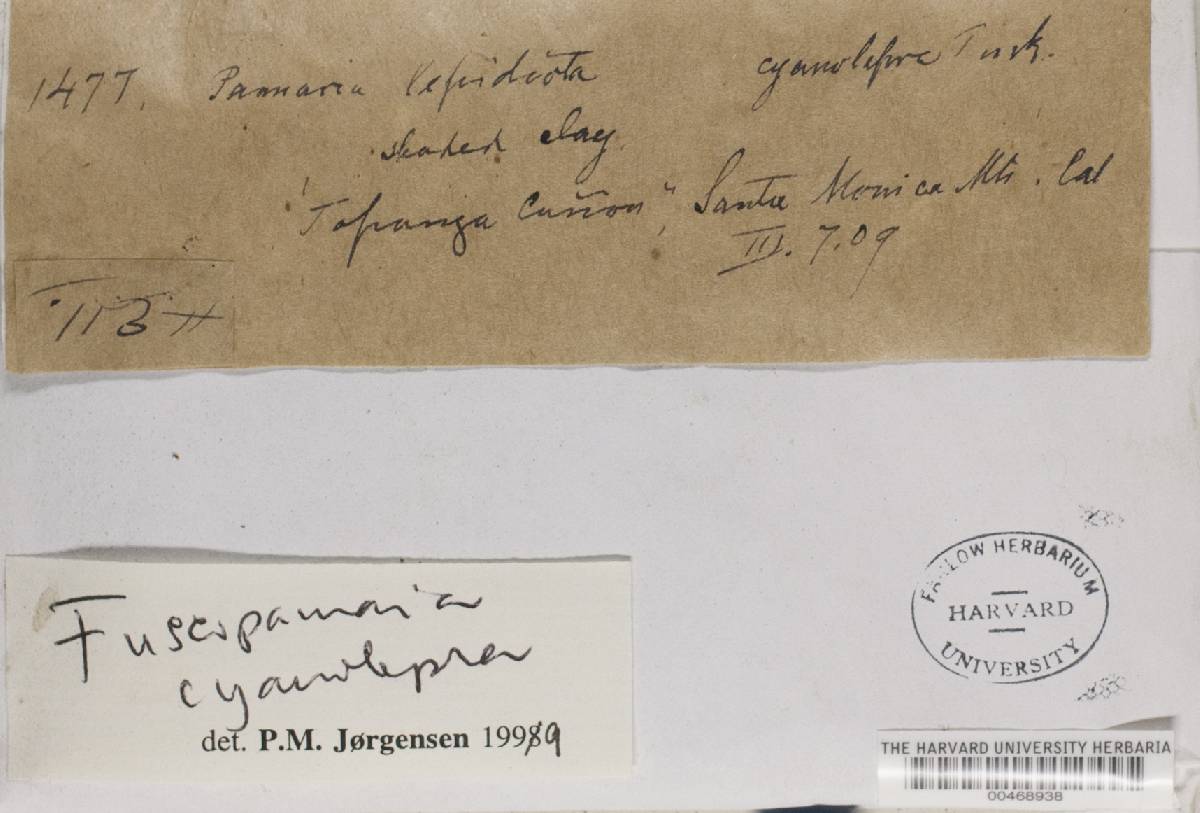 1477. Pannaria lepidiota cyanolepra Tuck.
shaded clay
"Topanga Cañon", Santa Monica Mts. Cal
III. 7.09
Fuscopannaria
cyanolepra
det. P.M. Jørgensen 1999
FARLOW HERBARIUM
HARVARD
UNIVERSITY
THE HARVARD UNIVERSITY HERBARIA
00468938